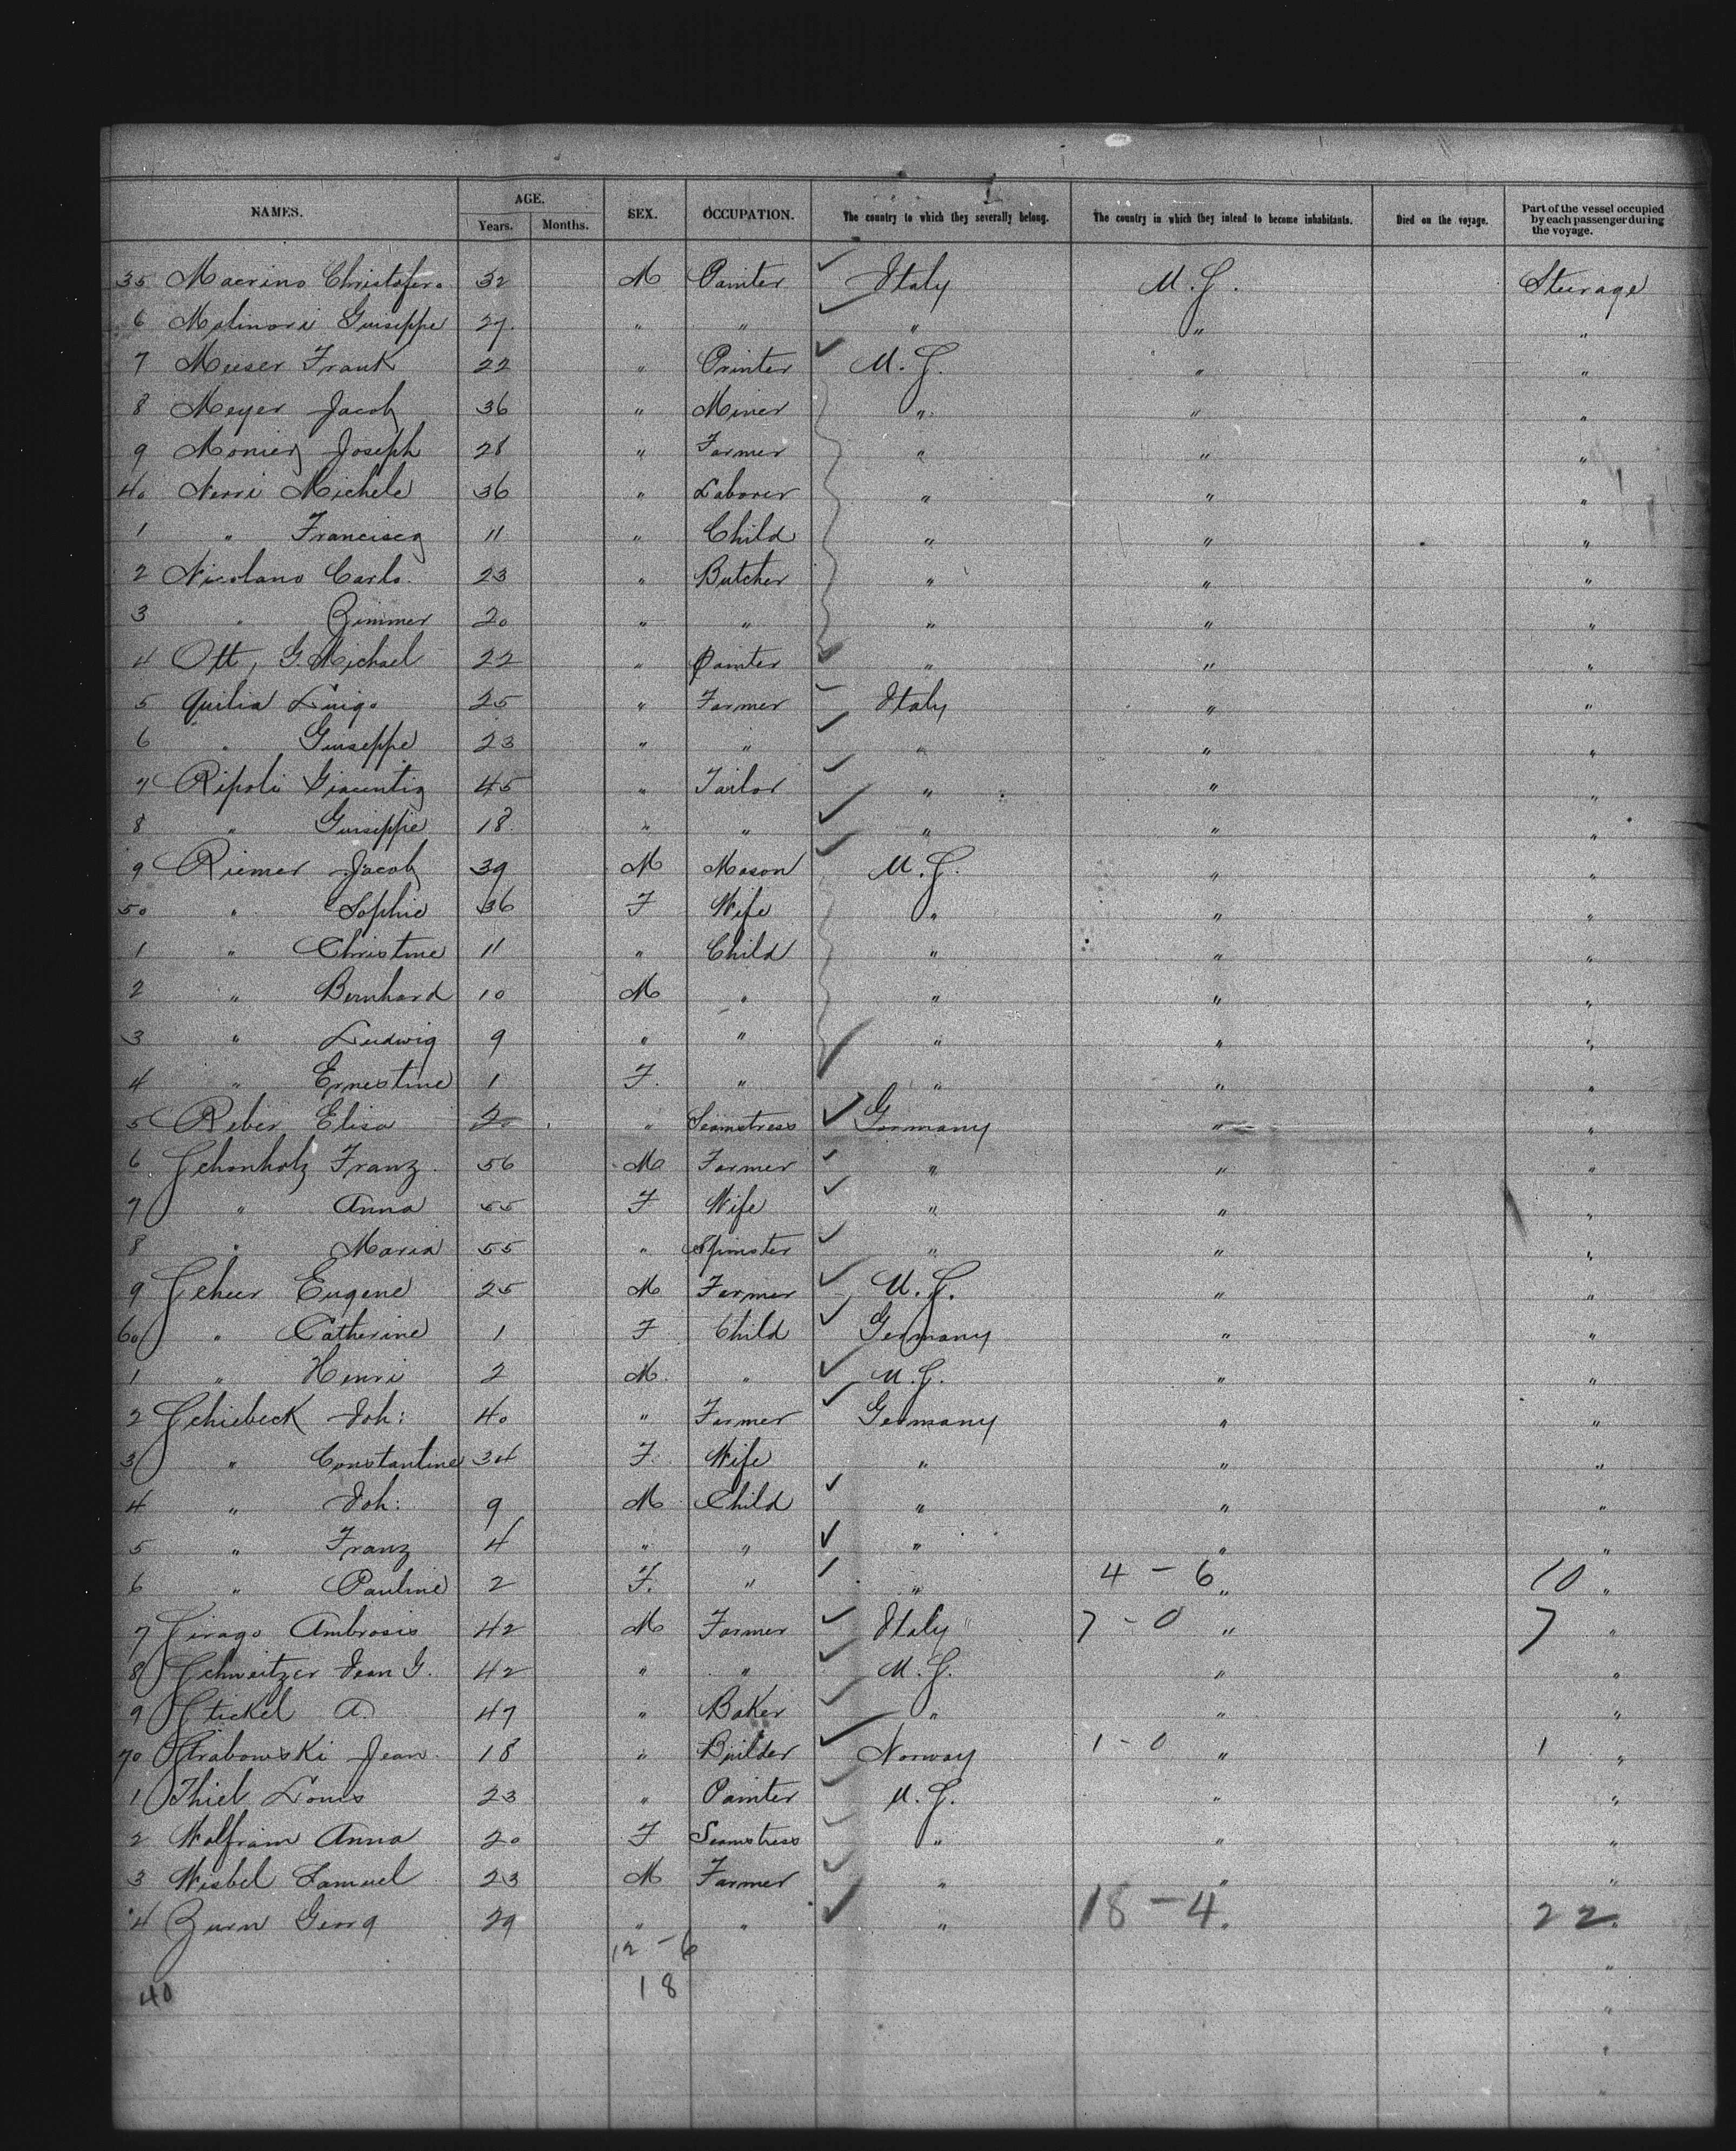 NAMES. AGE. Years. Months. SEX. OCCUPATION. The country to which they severally belong. The country in which they intend to become inhabitants. Died on the voyage. Part of the vessel occupied by each passenger during the voyage.
35 Macrino Christofero 32 M Painter Italy U.S. Steerage
6 Molinori Guiseppe 27 " " " " "
7 Meeser Frank 22 " Printer U.S. " "
8 Meyer Jacob 36 " Miner " " "
9 Monier Joseph 28 " Farmer " " "
40 Nerri Michele 36 " Laborer " " "
1 " Francisco 11 " Child " " "
2 Nicolano Carlo 23 " Butcher " " "
3 " Zimmer 20 " " " " "
4 Ott, G. Michael 22 " Painter " " "
5 Quilia Luigo 25 " Farmer Italy " "
6 " Guiseppe 23 " " " " "
7 Ripoli 45 " Tailor " " "
8 " Guiseppe 18 " " " " "
9 Riemer Jacob 39 M Mason U.S. " "
50 " Sophie 36 F Wife " " "
1 " Christine 11 " Child " " "
2 " Bernhard 10 M " " " "
3 " Ludwig 9 " " " " "
4 " Ernestine 1 F. " " " "
5 Reber Elisa 20 " Seamstress Germany " "
6 Schonholz Franz 56 M Farmer " " "
7 " Anna 55 F Wife " " "
8 " Maria 55 " Spinster " " "
9 Scheer Eugene 25 M Farmer U.S. " "
60 " Catherine 1 F Child Germany " "
1 " Henri 2 M " U.S. " "
2 Schiebeck Joh: 40 " Farmer Germany " "
3 " Constantine 34 F. Wife " " "
4 " Joh: 9 M Child " " "
5 " Franz 4 " " " " "
6 " Pauline 2 F. " " 4 - 6 " 10 "
7 Sirago Ambrosio 42 M Farmer Italy " 7 - 0 " 7 "
8 Schweitzer Jean G. 42 " " U.S. " "
9 Stickel A. 47 " Baker " " "
70 Strabowski Jean 18 " Builder Norway 1 - 0 " 1 "
1 Thiel Louis 23 " Painter U.S. " "
2 Wolfram Anna 20 F Seamstress " " "
3 Wisbel Samuel 23 M Farmer " " "
4 Zurn Georg 29 " " " 18 - 4 " 22 "
12 - 6 "
40 18 "
"
"